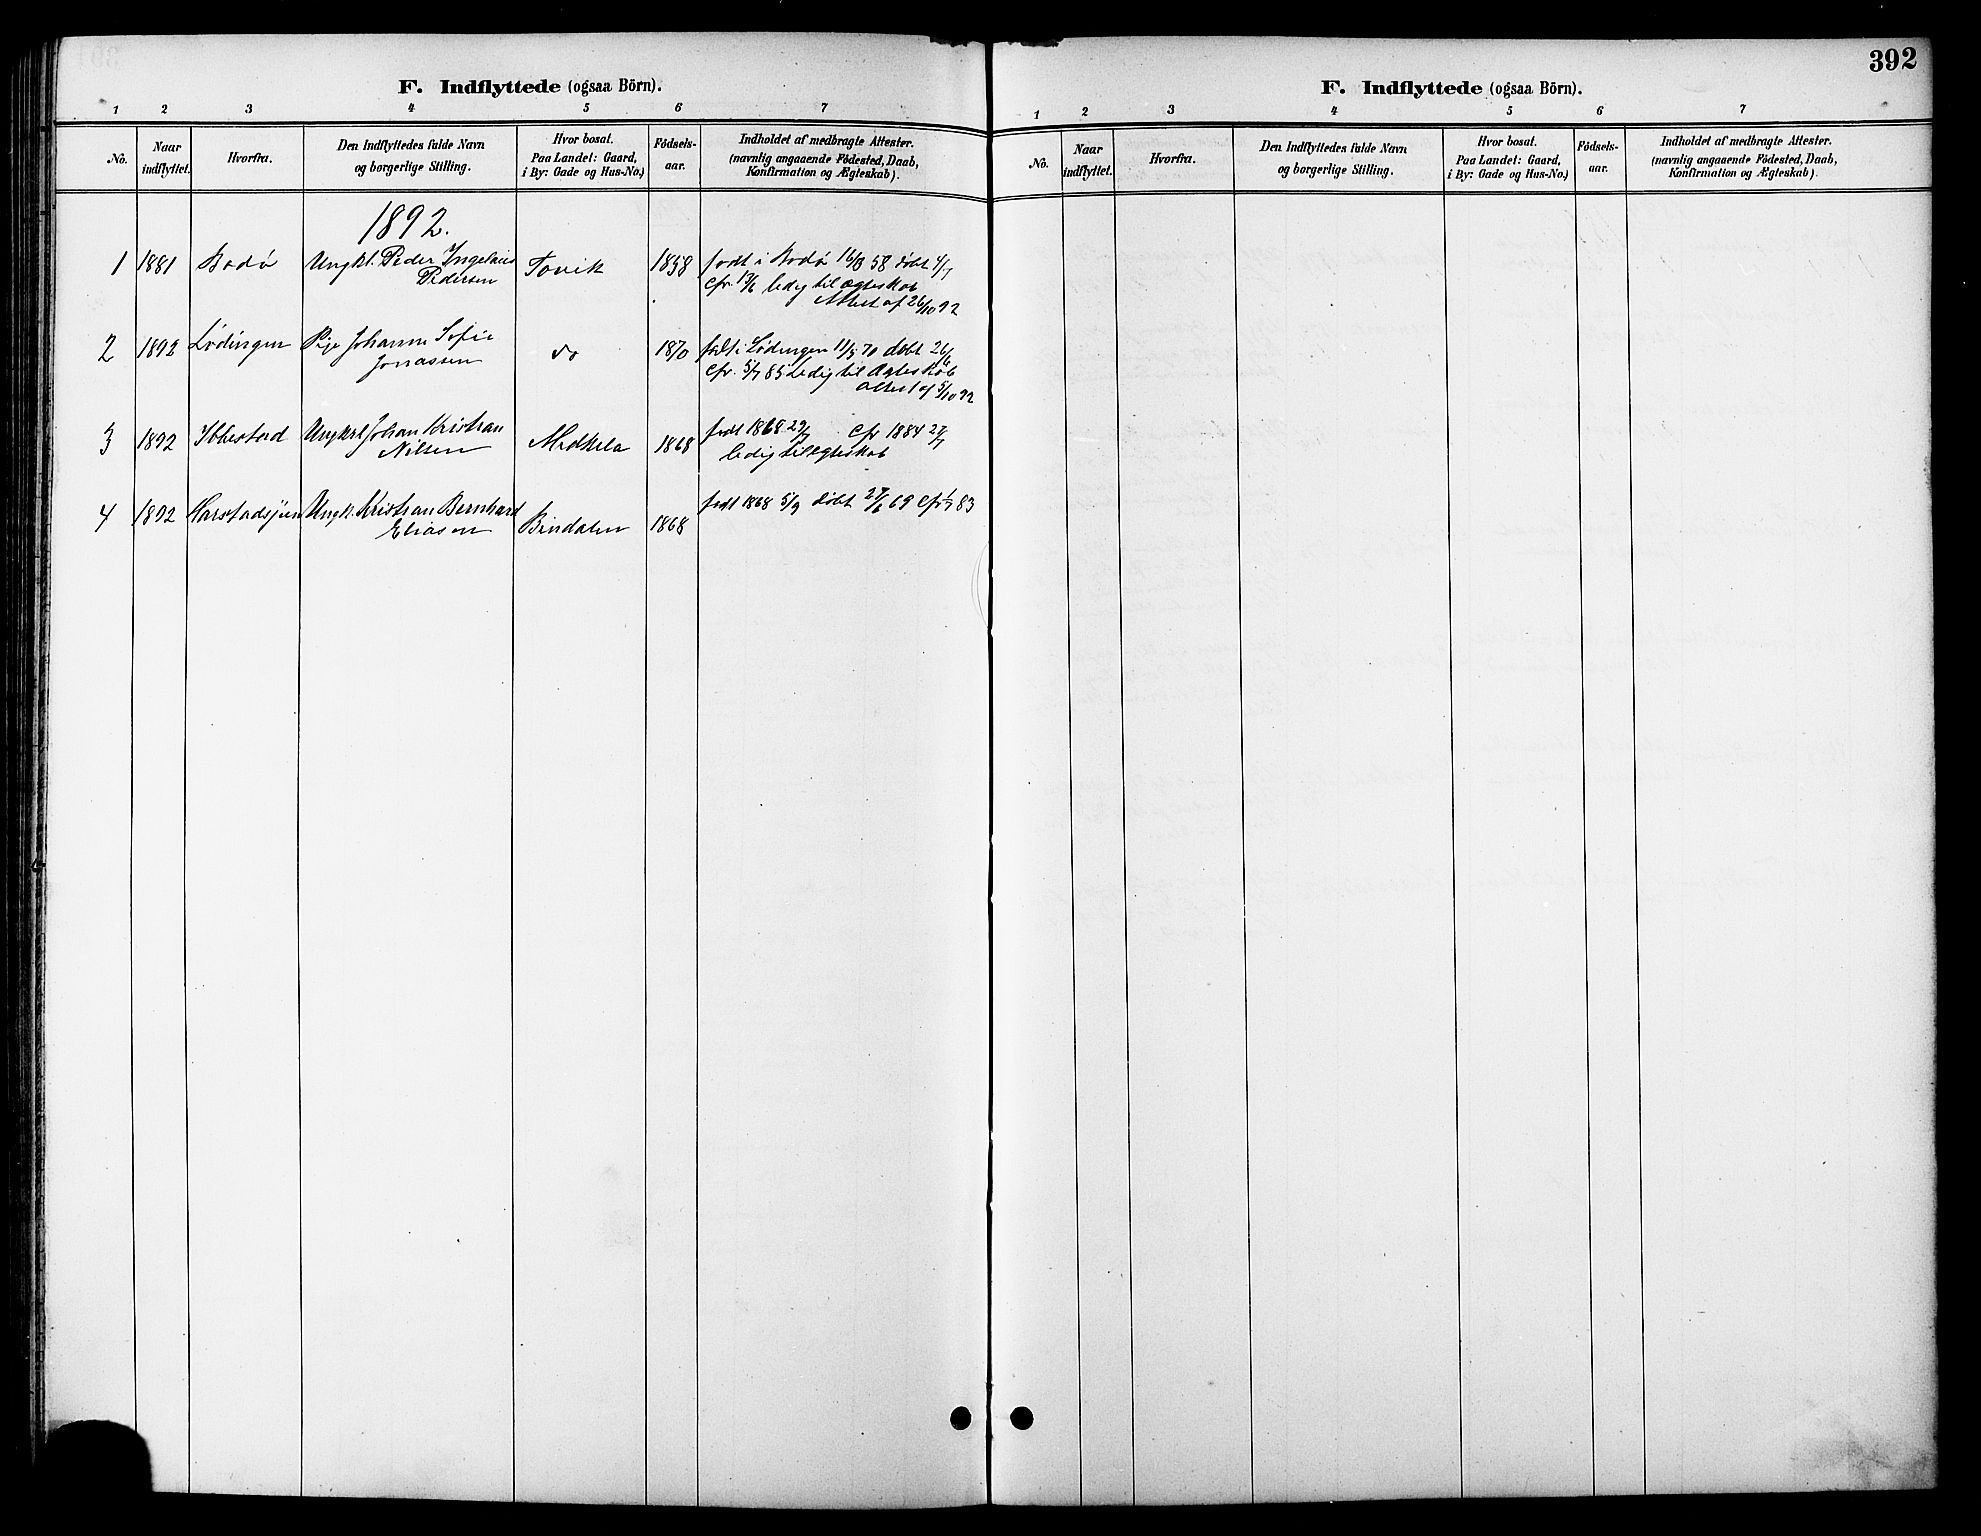 392
F. Indflyttede (ogsaa Börn).
1 2 3 4 5 6 7
No.
Naar indflyttet.
Hvorfra.
Den Indflyttedes fulde Navn
og borgerlige Stilling.
Hvor bosat.
Paa Landet: Gaard,
i By: Gade og Hus-No.)
Födsels-
aar.
Indholdet af medbragte Attester.
(navnlig angaaende Födested, Daab,
Konfirmation og Ægteskab).
1892.
1 1881 Bodø Ungkl. Peder Ingelius Tovik 1858 født i Bodø 16/3 58 døbt 4/7
Pedersen cfr. 17/6 ledig til ægteskab
Attest af 26/10 92
2 1892 Lødingen Pige Johanne Sofie do 1870 født i Lødingen 11/5 70 døbt 26/6
Jonassen cfr. 5/7 85 Ledig til Ægteskab
attest af 5/10 92
3 1892 Ibbestad Ungkrl Johan Kristian Medkila 1868 født 1868 29/7 cfr 1884 27/7
Nilsen ledig til ægteskab
4 1892 Harstadsjøen Ungk. Kristian Bernhard Bindalen 1868 født 1868 5/9 døbt 27/6 69 cfr 1/7 83
Eliasen
F. Indflyttede (ogsaa Börn).
1 2 3 4 5 6 7
No.
Naar
indflyttet.
Hvorfra.
Den Indflyttedes fulde Navn
og borgerlige Stilling.
Hvor bosat.
Paa Landet: Gaard,
i By: Gade og Hus-No.)
Födsels-
aar.
Indholdet af medbragte Attester.
(navnlig angaaende Födested, Daab,
Konfirmation og Ægteskab).